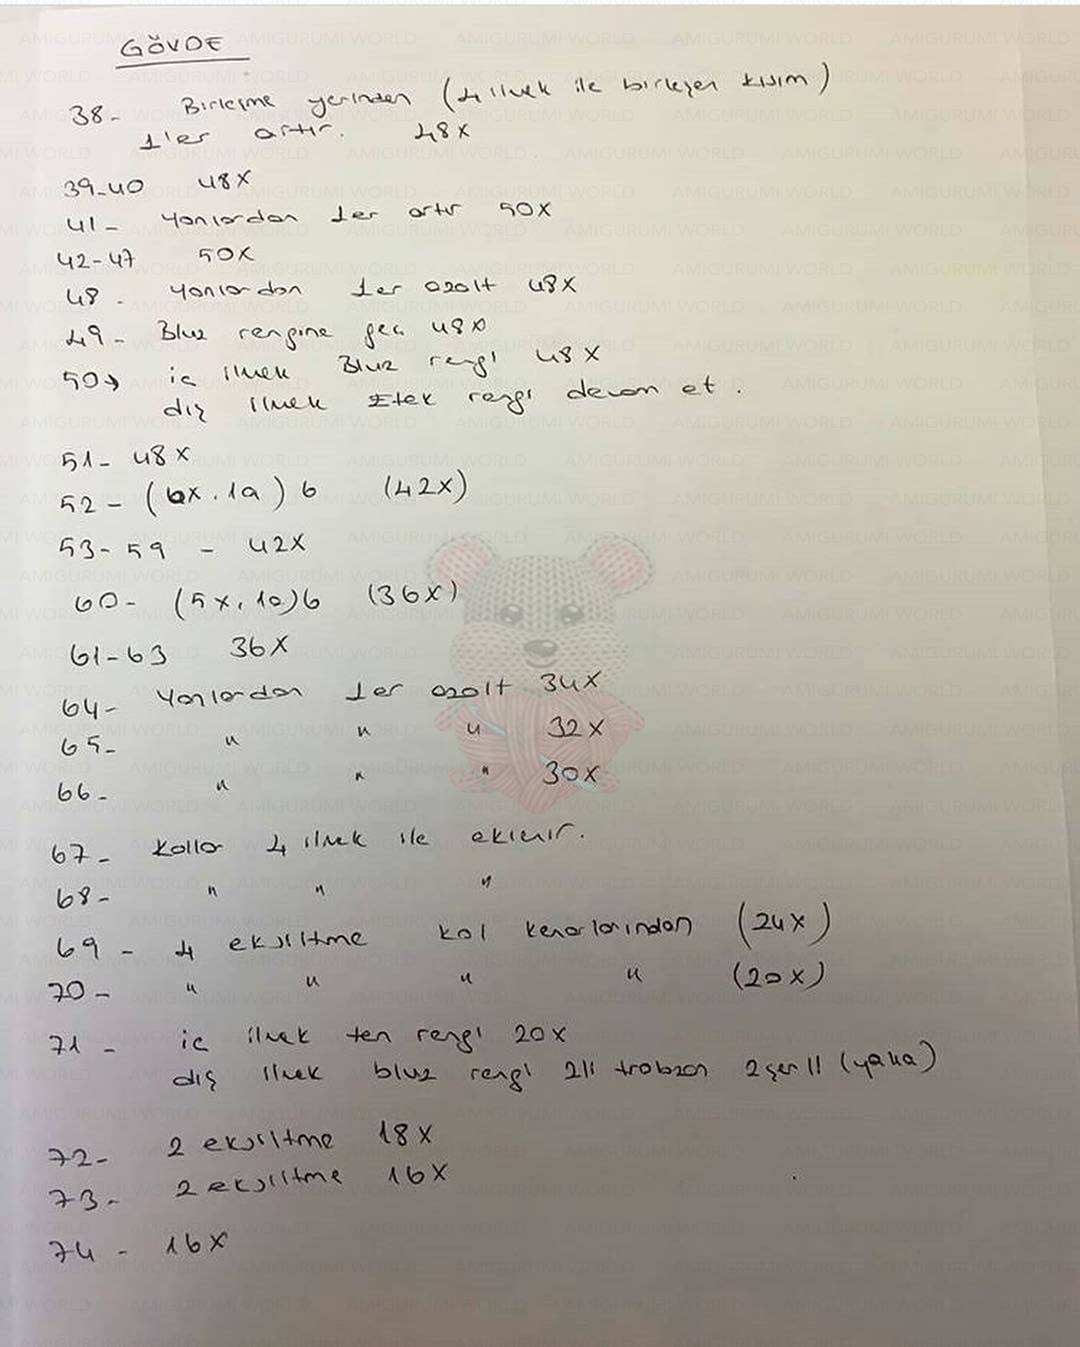 GÖVDE
38- Birleşme yerinden (4 ilmek ile birleşen kısım)
1'er artır. 48X
39-40 48X
41- Yanlardan 1er artır 50X
42-47 50X
48- Yanlardan 1er azalt 48X
49- Bluz rengine geç 48X
50→ iç ilmek Bluz rengi 48X
dış ilmek Etek rengi devam et.
51- 48X
52- (6x.1a)6 (42X)
53-59 - 42X
60- (5x,1a)6 (36X)
61-63 36X
64- Yanlardan 1er azalt 34X
65- " " " 32X
66- " " " 30X
67- Kollar 4 ilmek ile eklenir.
68- " " "
69- 4 eksiltme kol kenarlarından (24X)
70- " " " " (20X)
71- iç ilmek ten rengi 20X
dış ilmek bluz rengi 2li trabzan 2şerli (yaka)
72- 2 eksiltme 18X
73- 2 eksiltme 16X
74- 16X
AMIGURUMI WORLD